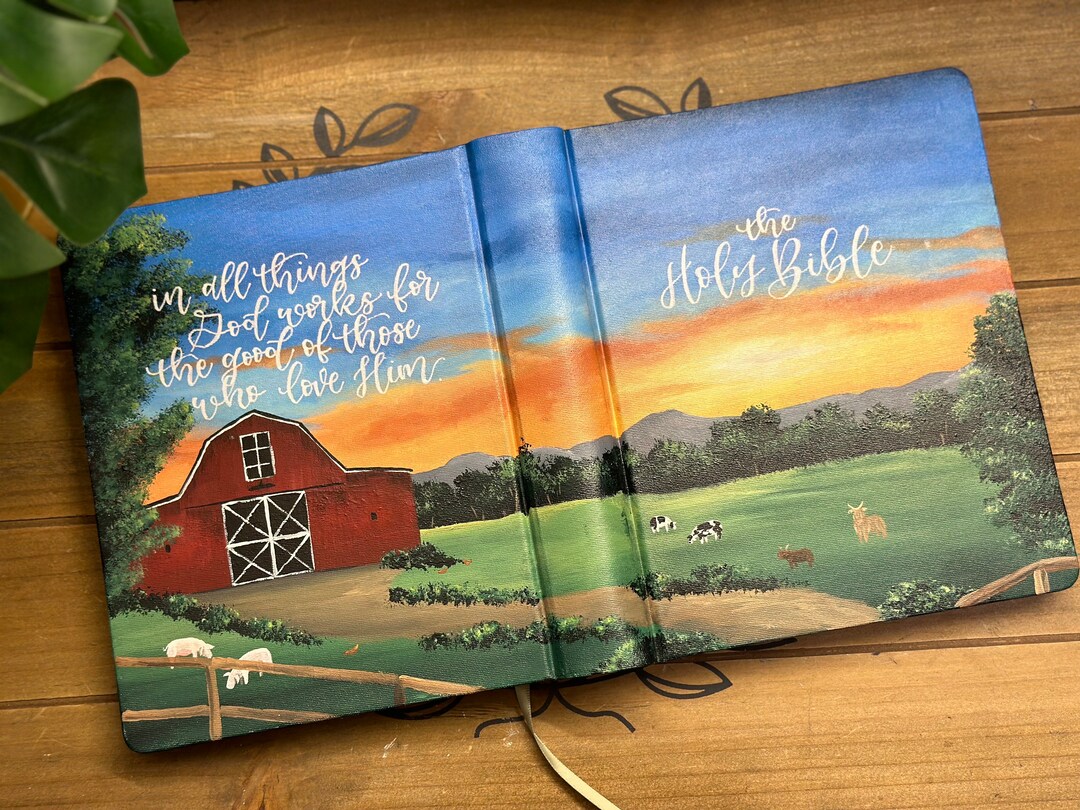 in all things
God works for
the good of those
who love Him.
the
Holy Bible